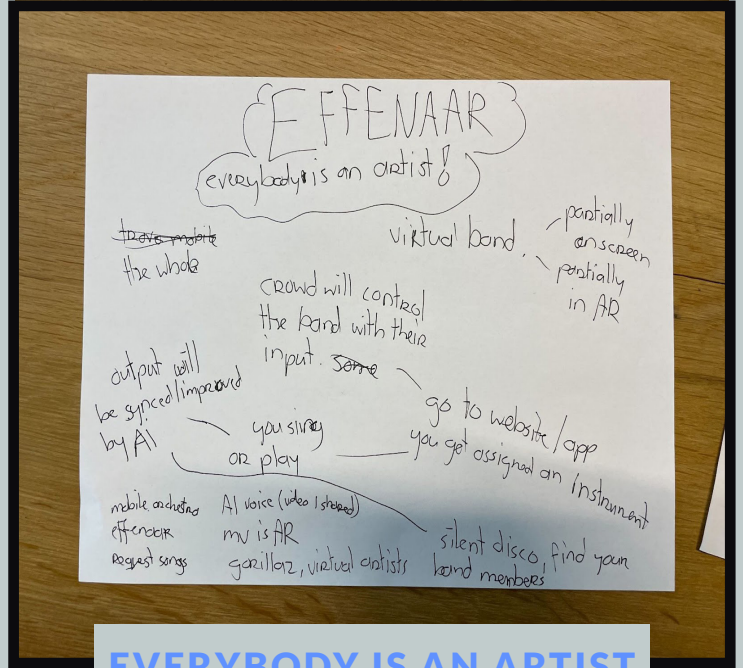 EFFENAAR
everybody is an artist!
the whole
virtual band.
partially
onscreen
partially
in AR
crowd will control
the band with their
input. some
output will
be synced/improved
by Ai
you sing
or play
go to website/app
you get assigned an instrument
mobile orchestra
effenaar
Request songs
AI voice (video I shared)
mv is AR
gorillaz, virtual artists
silent disco, find your
band members
EVERYBODY IS AN ARTIST